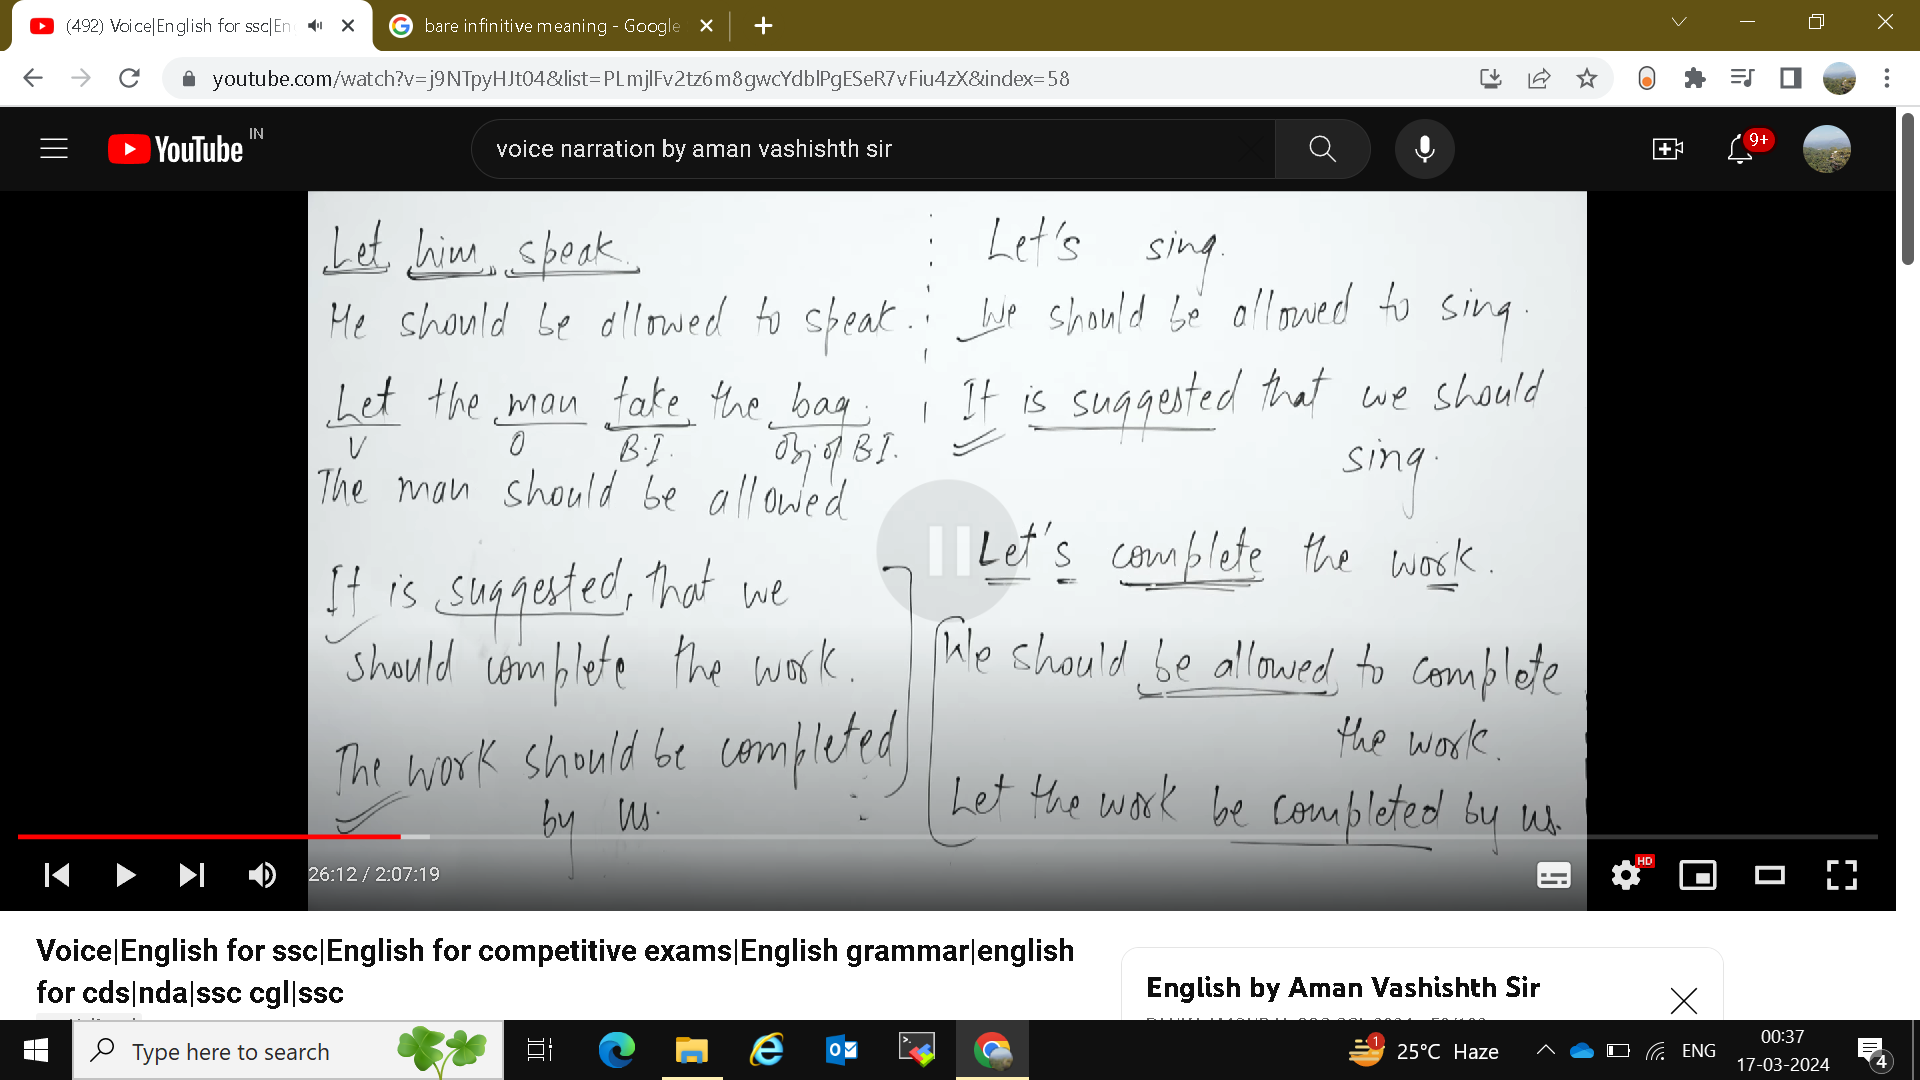 (492) Voice|English for ssc|En
bare infinitive meaning - Google
youtube.com/watch?v=j9NTpyHJt04&list=PLmjlFv2tz6m8gwcYdblPgESeR7vFiu4zX&index=58
YouTube IN
voice narration by aman vashishth sir
9+
Let him speak.
He should be allowed to speak.
Let the man take the bag.
V O B.I. Obj of B.I.
The man should be allowed
It is suggested that we
should complete the work.
The work should be completed
by us.
Let's sing.
We should be allowed to sing.
It is suggested that we should
sing.
Let's complete the work.
We should be allowed to complete
the work.
Let the work be completed by us.
26:12 / 2:07:19
HD
Voice|English for ssc|English for competitive exams|English grammar|english
for cds|nda|ssc cgl|ssc
English by Aman Vashishth Sir
Type here to search
1
25°C Haze
ENG
00:37
17-03-2024
4